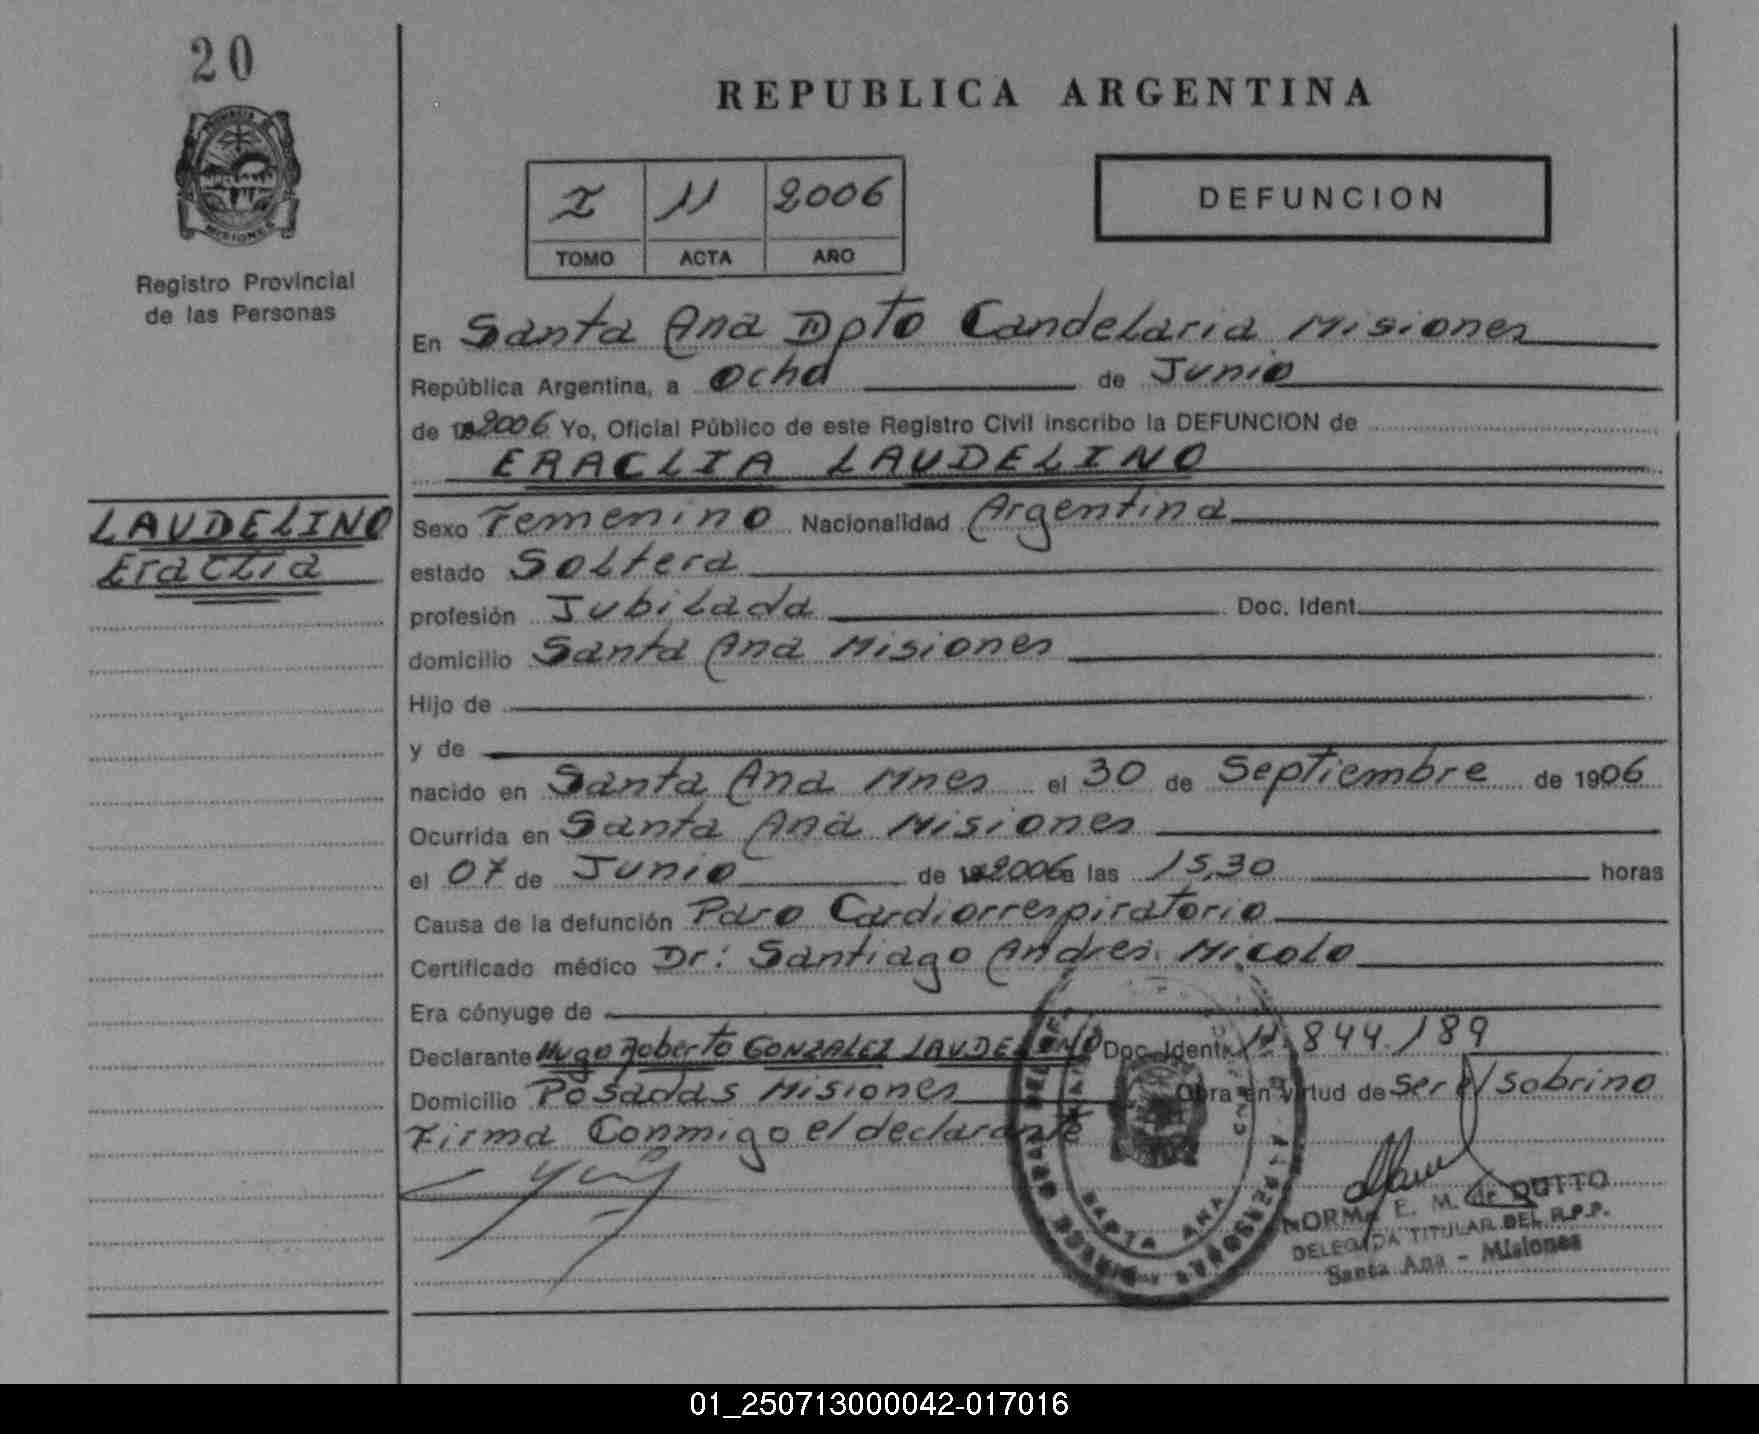 20
MISIONES
Registro Provincial
de las Personas
LAUDELINO
Eraclia
REPUBLICA ARGENTINA
I 11 2006
TOMO ACTA AÑO
DEFUNCION
En Santa Ana Dpto Candelaria Misiones
República Argentina, a Ocho de Junio
de 2006 Yo, Oficial Público de este Registro Civil inscribo la DEFUNCION de
ERACLIA LAUDELINO
Sexo Femenino Nacionalidad Argentina
estado Soltera
profesión Jubilada Doc. Ident.
domicilio Santa Ana Misiones
Hijo de
y de
nacido en Santa Ana Mnes el 30 de Septiembre de 1906
Ocurrida en Santa Ana Misiones
el 07 de Junio de 2006 a las 15,30 horas
Causa de la defunción Paro Cardiorrespiratorio
Certificado médico Dr: Santiago Andres Micolo
Era cónyuge de
Declarante Hugo Roberto GONZALEZ LAUDELINO Doc. Ident. 11.844.189
Domicilio Posadas Misiones Obra en virtud de Ser el Sobrino
Firma Conmigo el declarante
SANTA ANA
NORMA E. M. de DUTTO
DELEGADA TITULAR DEL R.P.P.
Santa Ana - Misiones
01_250713000042-017016